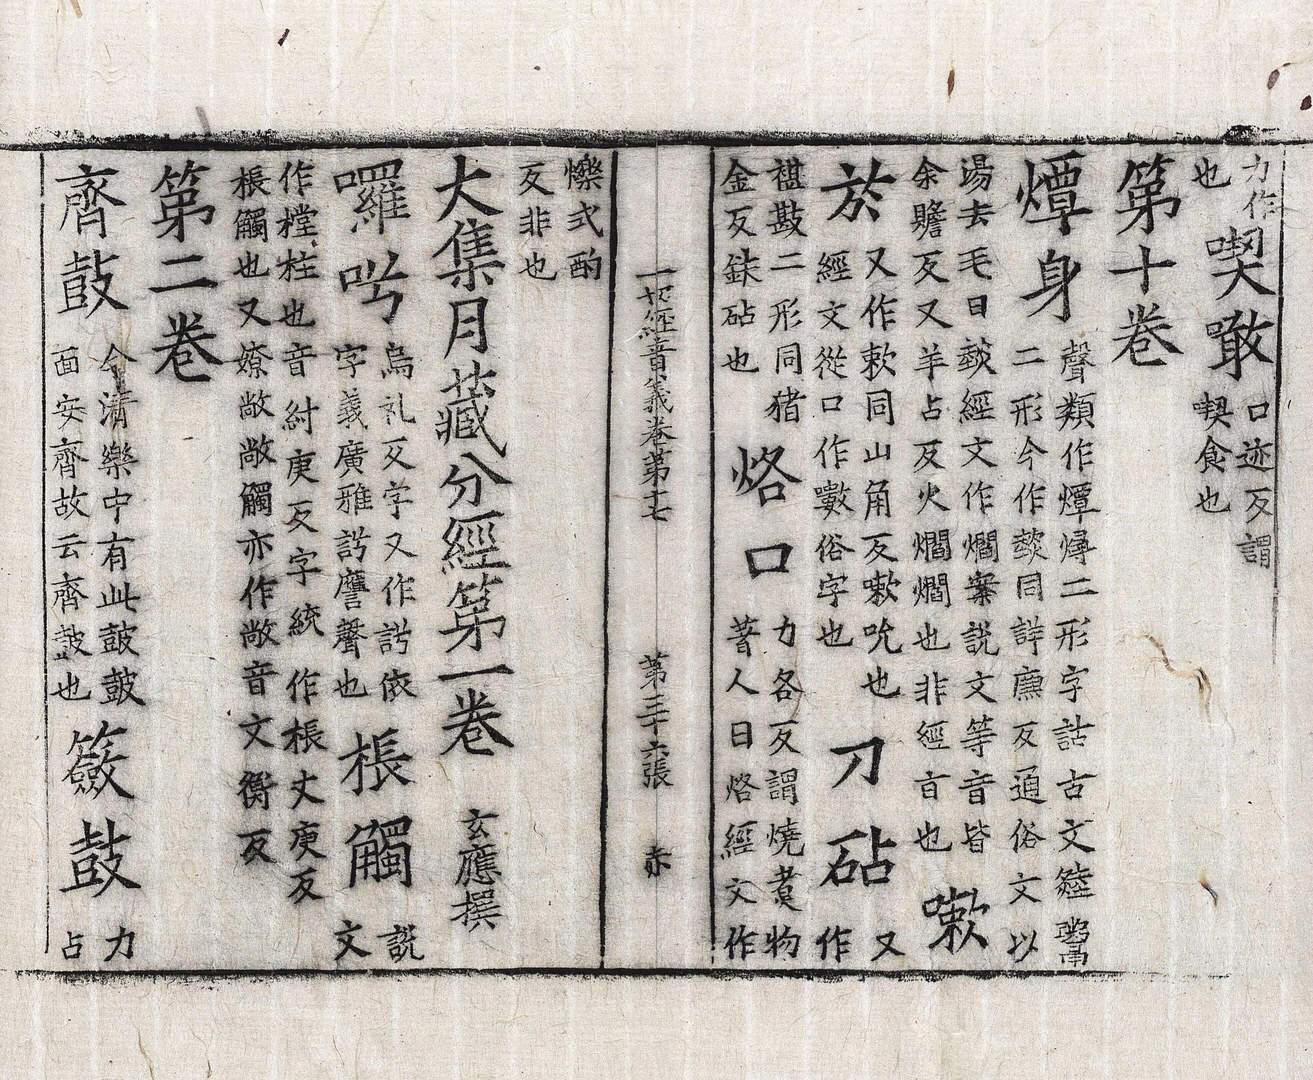 力作
也
喫噉
口迹反謂
喫食也
第十卷
燂身
聲類作燂燖二形字詁古文䥵
二形今作𤏶同詳廉反通俗文以
湯去毛曰𤏶經文作爓案說文等音皆
余贍反又羊占反火爓爓也非經旨也
嗽
於
又作欶同山角反嗽吮也
經文從口作㱊俗字也
刀砧
又
作
椹㪣二形同猪
金反鈇砧也
烙口
力各反謂燒煑物
著人曰烙經文作
一切經音義卷第十七
第三十六張
赤
爍式酌
反非也
大集月藏分經第一卷
玄應撰
囉吘
烏礼反字又作䚷依
字義廣雅䚷譍聲也
棖觸
説
文
作樘柱也音紂庚反字統作棖丈庚反
棖觸也又嫽敞敞觸亦作敞音文衡反
第二卷
齊鼓
今清樂中有此鼓鼓
面安齊故云齊鼓也
籢鼓
力
占